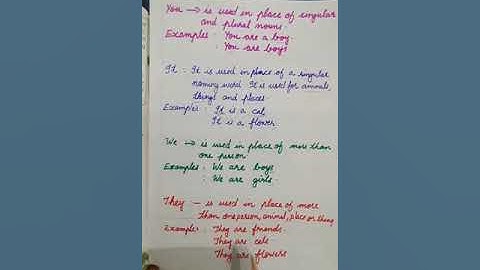 You → is used in place of singular
and plural nouns.
Examples : You are a boy.
: You are boys
It : It is used in place of a singular
naming word. It is used for animals,
things and places.
Examples : It is a cat,
It is a flower.
We → is used in place of more than
one person
Examples : We are boys
: We are girls.
They – is used in place of more
than one person, animal, place or thing
Examples : They are friends.
They are cats
They are flowers